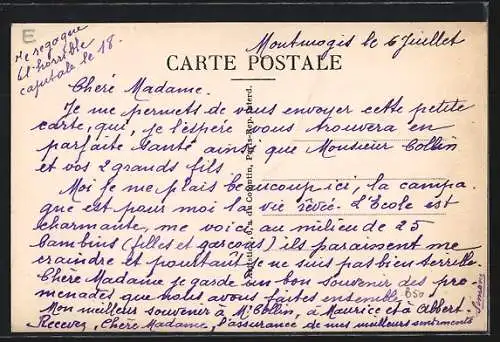 E
Je regagne
l'horrible
capitale le 18.
Montmogis le 6 Juillet
CARTE POSTALE
Chère Madame.
Je me permets de vous envoyer cette petite
carte, qui, je l'espère vous trouvera en
parfaite santé ainsi que Monsieur Collin
et vos 2 grands fils
Moi je me plais beaucoup ici, la campa
gne est pour moi la vie rêvée. L'Ecole est
charmante, me voici au milieu de 25
bambins (filles et garçons) ils paraissent me
craindre et pourtant je ne suis pas bien terrible.
Chère Madame je garde un bon souvenir des pro-
menades, que nous avons faites ensemble
Mon meilleurs souvenir à Mr Collin, à Maurice et à Albert.
Recevez, Chère Madame, l'assurance de mes meilleurs sentiments
Simone